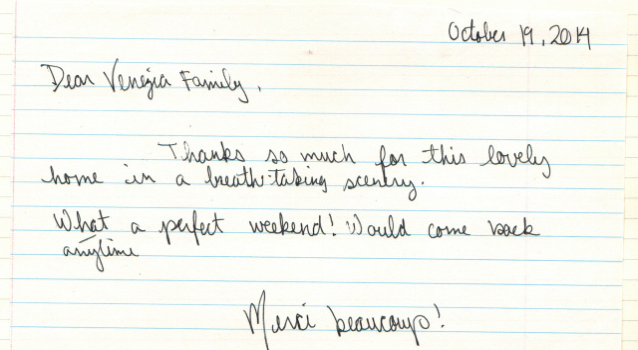 October 19, 2014
Dear Venezia Family,
Thanks so much for this lovely
home in a breath-taking scenery.
What a perfect weekend! Would come back
anytime
Merci beaucoup!